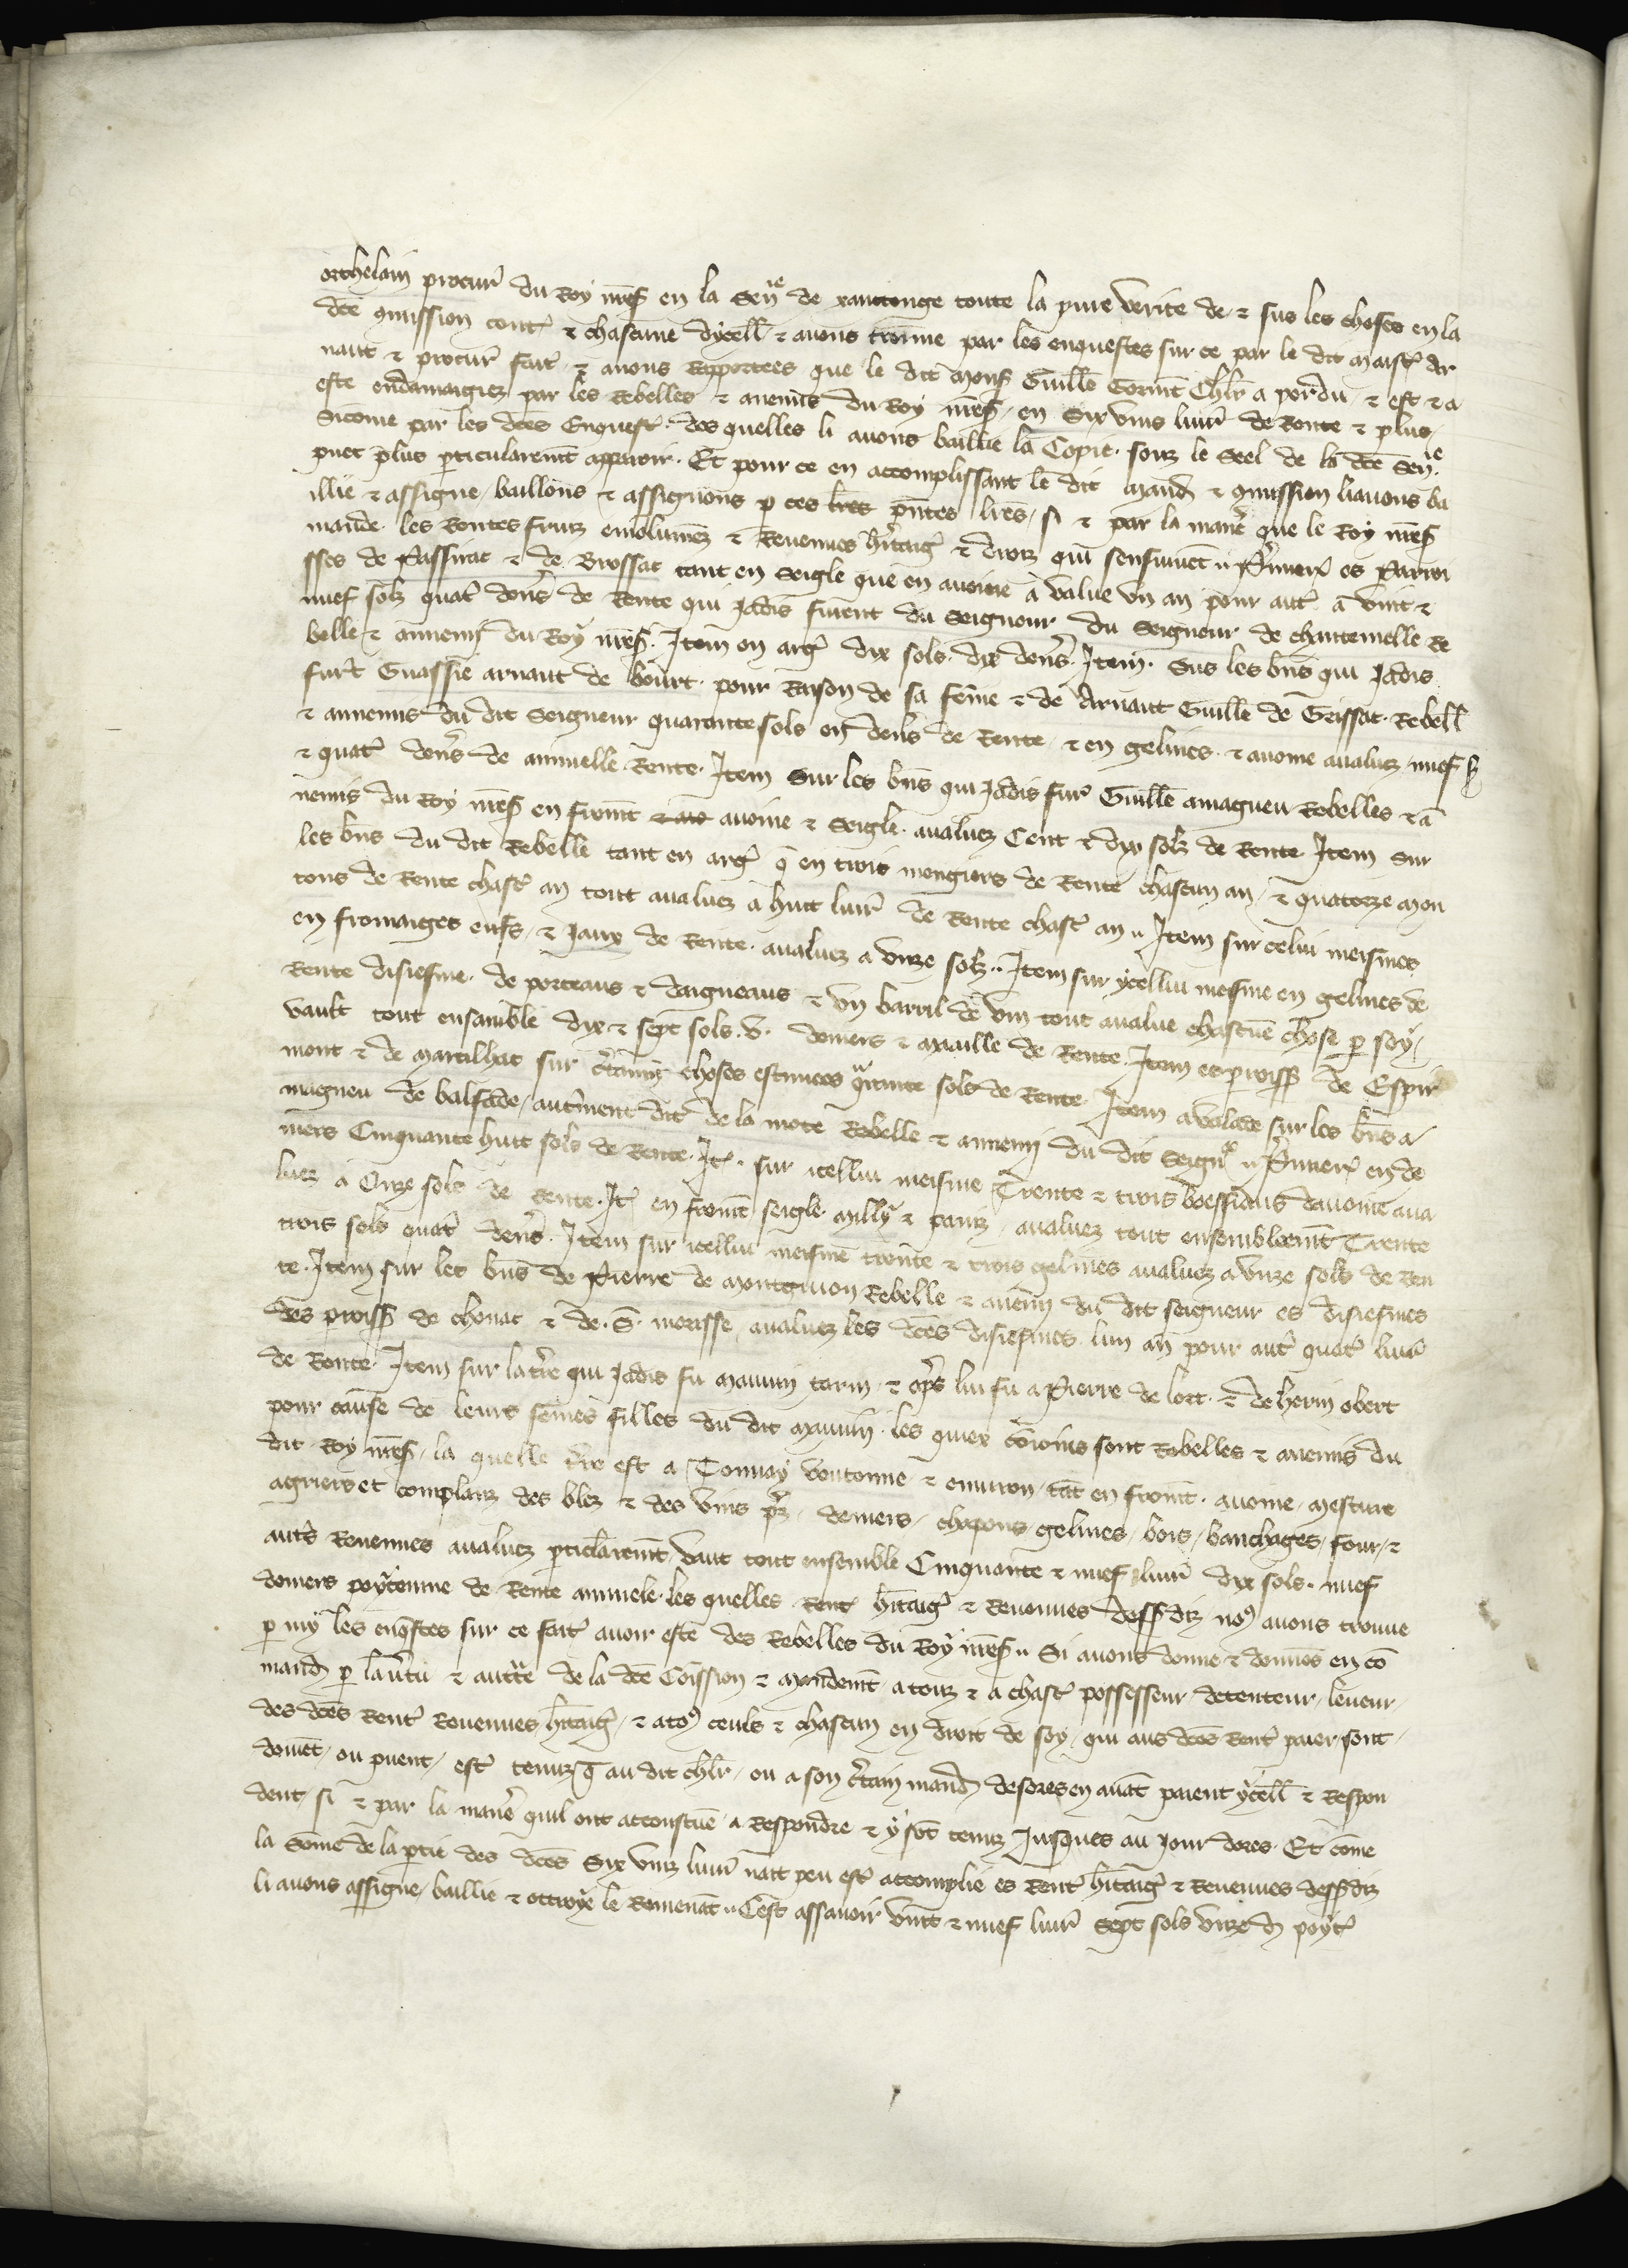 orthelain procur̄ du Roy nr̄eS en la Sen̄ie de xanctonge toute la pure verite de ⁊ sus les choses en la
dc̄e ꝯmission cont̄ ⁊ chascune dycell̄ ⁊ auons trouue par les enquestes sur ce par le dit maist̄ Ar
naut ⁊ procur̄ fait̄ ⁊ auons Rapportees que le dit monS Guill̄e Gorm̄t Chl̄r a perdu ⁊ est ⁊ a
este endamagiez par les Rebelles ⁊ anemis du Roy nr̄eS en Six vins liur̄ de Rente ⁊ plus
Sicome par les dc̄es Enquest̄ des quelles li auons baillie la Copie souz le Seel de la dc̄e Sen̄ie
puet plus ꝑticularem̄t apparoir. Et pour ce en accomplissant le dit mand̄ ⁊ ꝯmission li auons ba
illie ⁊ assigne baillons ⁊ assignons ꝑ ces lr̄es pn̄tes lr̄es si ⁊ par la maner̄ que le Roy nr̄eS
mande les Rentes fruiz emolumez ⁊ Reuenues hr̄itaiḡ ⁊ droiz qui sensuiuēt Prumer̄ es Parroi
sses de Passirac ⁊ de Brossac tant en Seigle que en auoine a value vn an pour aut̄ a vint ⁊
nuef solz quat̄ den̄s de Rente qui jadis furent du Seigneur du Seigneur de chantemelle Re
belle ⁊ annemi du Roy nr̄eS. Item en arḡ dix sols dix den̄s. Item Sus les bn̄s qui jadis
fur̄t Guassie arnaut de bourt pour Raison de sa feme ⁊ de Arnaut Guille de Geissac Rebell̄
⁊ annemis du dit Seigneur quarante sols en den̄s de Rente ⁊ en gelines ⁊ auoine aualuez nuef s
⁊ quat̄ den̄s de annuelle Rente. Item Sur les bn̄s qui jadis fur̄ Guill̄e amagneu Rebelles ⁊ a
nemis du Roy nr̄eS en from̄t auoine ⁊ Seigle aualuez Cent ⁊ dix solz de Rente Item Sur
les bn̄s du dit Rebelle tant en arḡ q̄ en trois mengiers de Rente chascun an ⁊ quatorze mou
tons de Rente chasc̄ an tout aualuez a huit liur̄ de Rente chasc̄ an Item sur celui meismes
en fromaiges oeufs ⁊ Jaux de Rente aualuez a vnze solz. Item sur ycellui mesme en gelines de
Rente disiesme de porceaus ⁊ daigneaus ⁊ vn barril de vin tout aualue chascune chose ꝑ soy
vault tout ensamble dix ⁊ sept sols v deniers ⁊ maaille de Rente Item es ꝑroisS de Espir
mont ⁊ de Martilhac sur cr̄tainnez choses estimees q̄rante sols de Rente Item a valade sur les bn̄s a
magneu de balsade autrement dit de la mote Rebelle ⁊ annemi du dit Seigñ Prumer̄ en de
niers Cinquante huit sols de Rente. It̄ sur icellui meisme Trente ⁊ trois boessiaus dauoine aua
luez a Onze sols de Rente. It̄ en from̄t seigle milly ⁊ paniz aualuez tout ensemblem̄t Trente
trois sols quat̄ den̄s Item sur icellui meisme trente ⁊ trois gelines aualuez a vnze sols de Ren
te. Item sur les bn̄s de Pierre de Montguion Rebelle ⁊ anemi du dit seigneur es disiesmes
des ꝑroisS de chenac ⁊ de S. morisse aualuez les dc̄es disiesmes lun an pour aut̄ quat̄ liur̄
de Rente Item sur la tr̄re qui jadis fu Mauuin tarin ⁊ apr̄s lui fu a Pierre de lort ⁊ de herin obert
pour cause de leurs femes filles du dit Mauuin les quiex sont Rebelles ⁊ anemis du
dit Roy nr̄eS la quelle tr̄re est a Tonnay voutonne ⁊ enuiron tāt en from̄t auoine mesture
agriers et complanz des blez ⁊ des vins deniers chapons gelines bois banchages four ⁊
aut̄s Reuenues aualuez ꝑticlarem̄t vaut tout ensemble Cinquante ⁊ nuef liur̄ dix sols nuef
deniers poyteuine de Rente annuele les quelles Rent̄ hr̄itaiḡ ⁊ Reuenues dessSdiz noꝰ auons trouue
ꝑ my les enq̄stes sur ce fait̄ auoir este des Rebelles du Roy nr̄eS Si auons donne ⁊ donnōs en cō
mand̄ ꝑ la v̄tu ⁊ auct̄te de la dc̄e Cōission ⁊ mandem̄t a touz ⁊ a chasc̄ possesseur detenteur leueur
des dc̄es Rent̄ Reuenues hr̄itaiḡ ⁊ a toꝰ ceuls ⁊ chascun en droit de soy qui aus dc̄es Rent̄ paier sont
doiuēt ou puent est̄ tenuz q̄ au dit chl̄r ou a son cr̄tain mand̄ desores en auāt paient ycell̄ ⁊ Respon
dent si ⁊ par la maner̄ quil ont accoustume a Respondre ⁊ y sōt tenuz Jusques au jour dores. Et come
la Some de la ꝑtie des dc̄es Six vinz liur̄ nait peu est̄ accomplie es Rent̄ hr̄itaiḡ ⁊ Reuenues dessSdiz
li auons assigne baillie ⁊ ottroye le Remenāt Cest assauoir vint ⁊ nuef liur̄ Sept sols vnze d̄ poyt̄